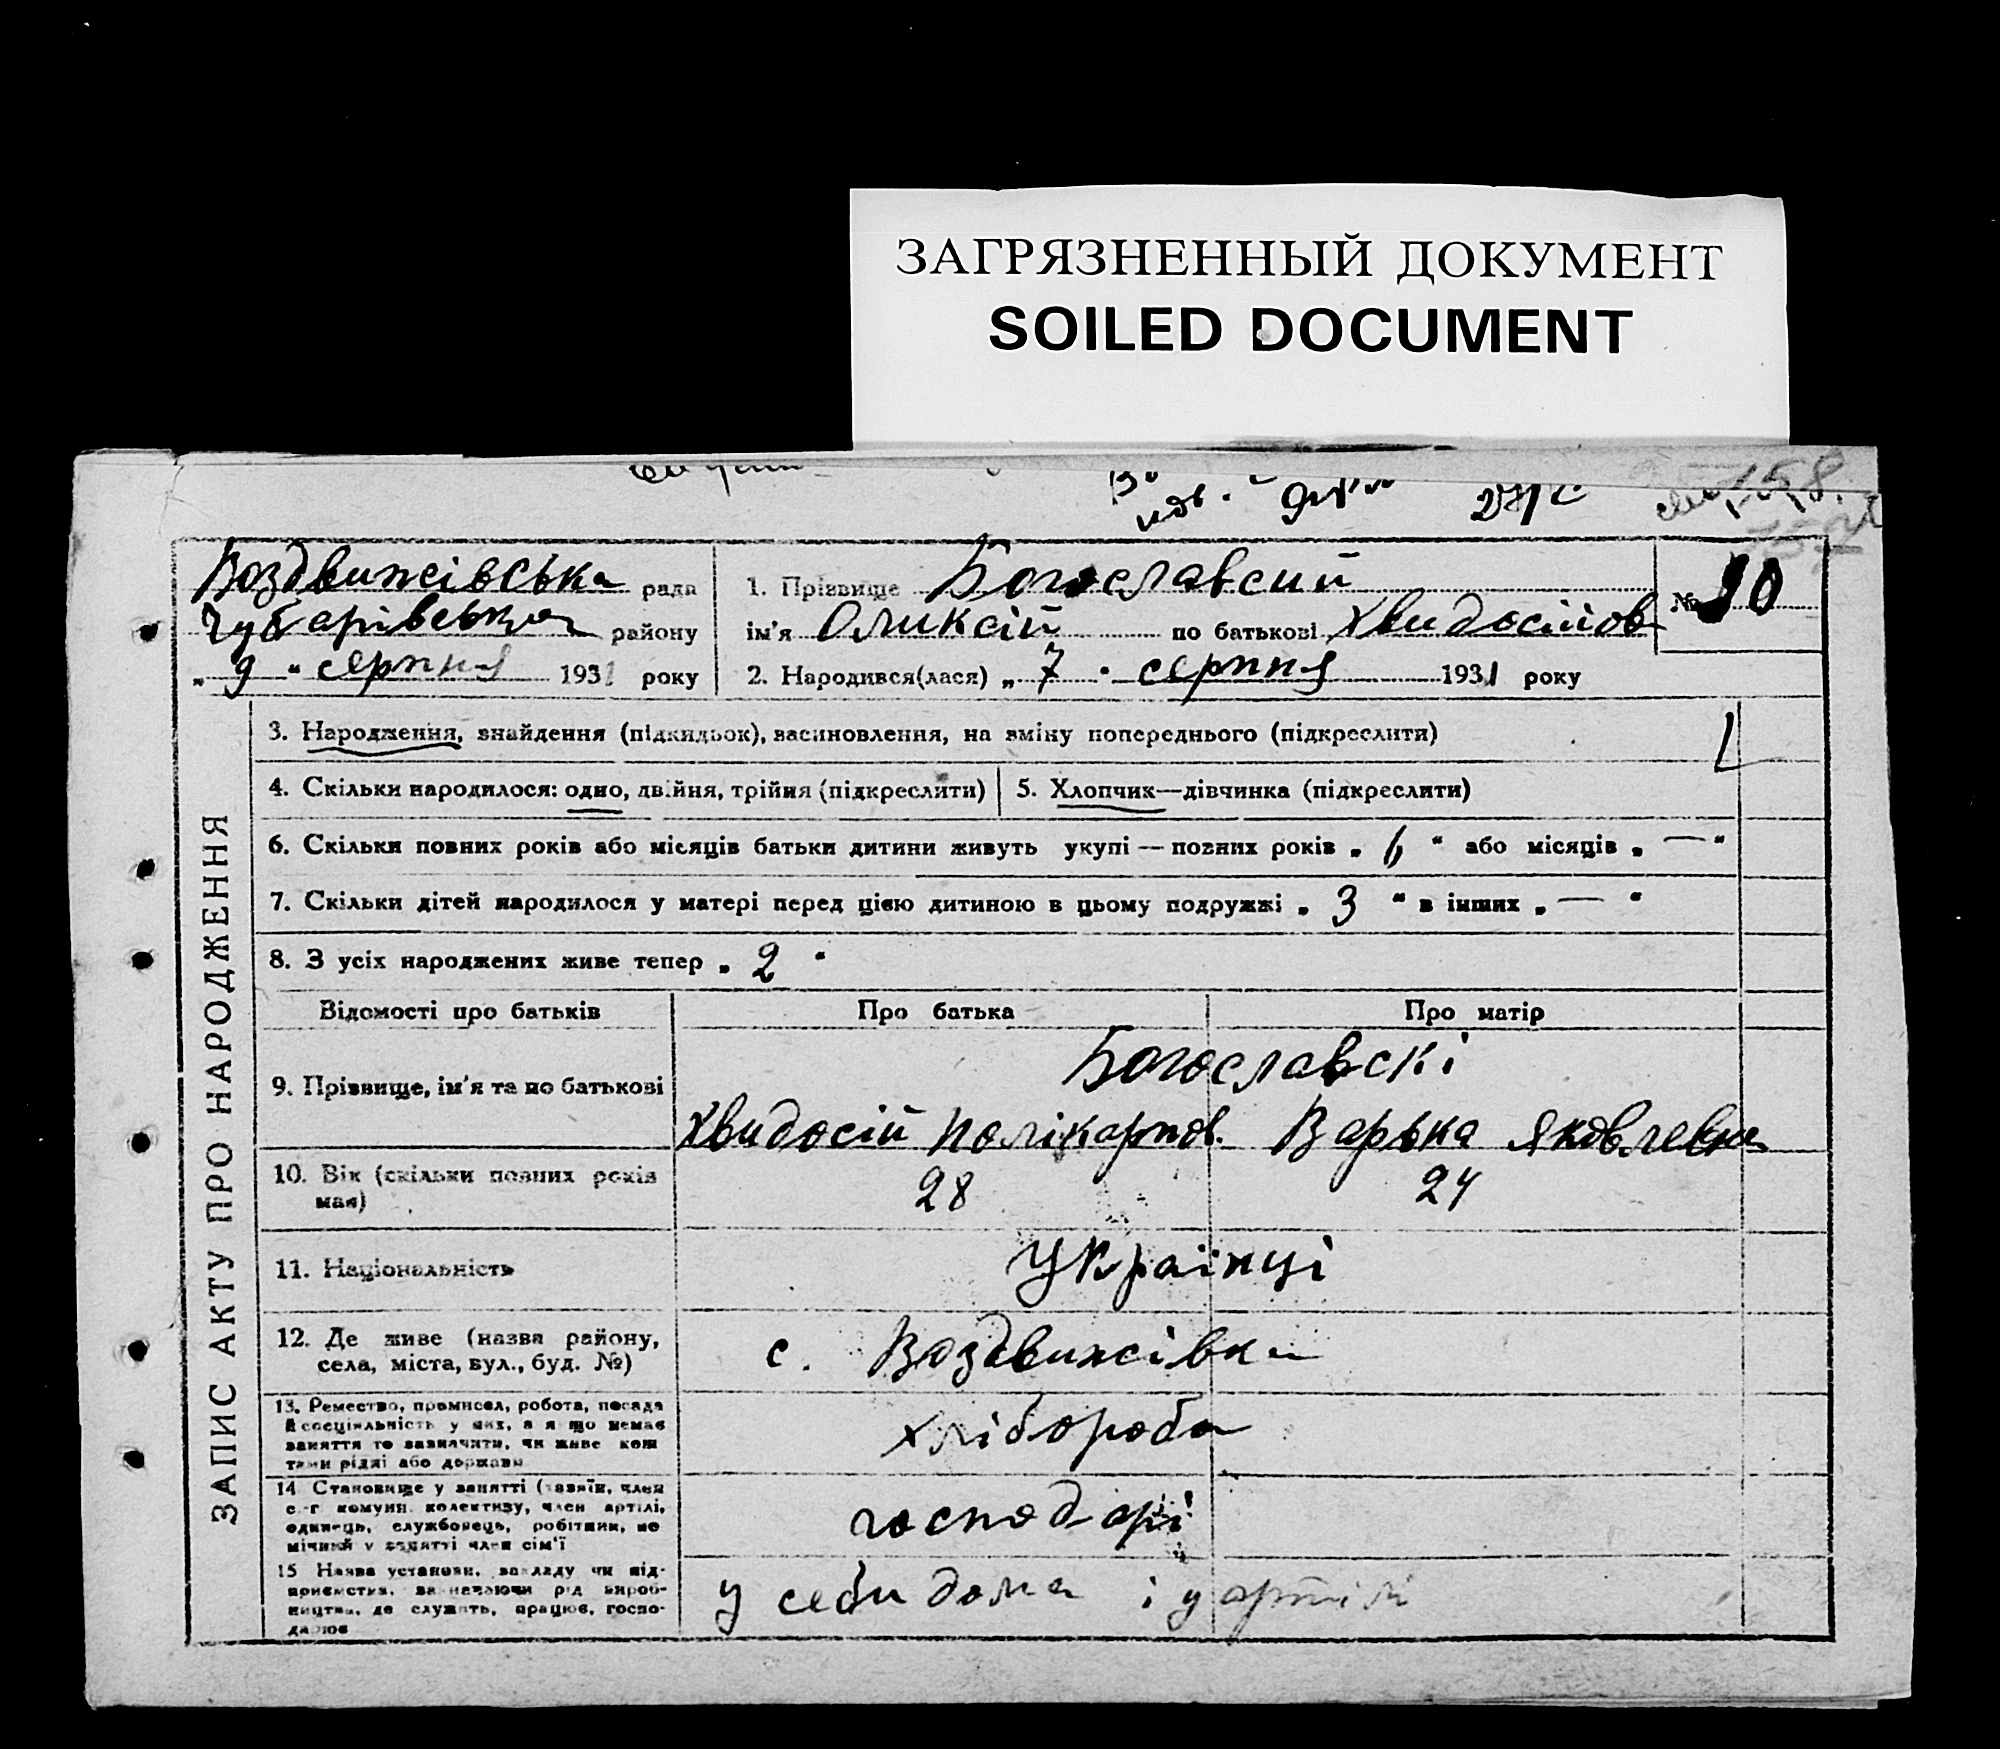 ЗАГРЯЗНЕННЫЙ ДОКУМЕНТ
SOILED DOCUMENT
Воздвижсівська рада
Чубарівського району
„ 9 “ серпня 1931 року
1. Прізвище Богославсий
ім'я Оликсій по батькові Хвидосійов
№ 10
2. Народився(лася) „ 7 “ серпня 1931 року
ЗАПИС АКТУ ПРО НАРОДЖЕННЯ
3. Народження, знайдення (підкидьок), васиновлення, на зміну попереднього (підкреслити)
4. Скільки народилося: одно, двійня, трійня (підкреслити)
5. Хлопчик—дівчинка (підкреслити)
6. Скільки повних років або місяців батьки дитини живуть укупі — повних років „ 6 “ або місяців „ — “
7. Скільки дітей народилося у матері перед цією дитиною в цьому подружжі „ 3 “ в інших „ — “
8. З усіх народжених живе тепер „ 2 “
Відомості про батьків Про батька Про матір
9. Прізвище, ім'я та по батькові
Богославскі
Хвидосій Полікарпов. Варька Яковлевна
10. Вік (скільки повних років
має)
28 24
11. Національність
Українці
12. Де живе (назва району,
села, міста, вул., буд. №)
с. Воздвижсівка
13. Ремество, промисел, робота, посада
й спеціяльність у них, а я що немає
заняття то зазначити, чи живе кош
тами рідні або держави
хлібороба
14 Становище у занятті (хазяїн, член
с.-г комуни, колективу, член артілі,
одинець, службовець, робітник, по
мічний у занятті член сім'ї
господарі
15 Назва установи, закладу чи під-
приємства, зазначаючи рід вироб-
ництва, де служить, працює, госпо-
дарює
у себи дома і у артілі